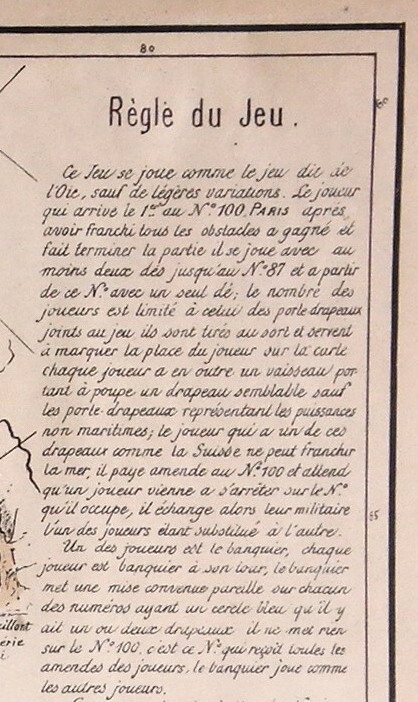 80
60
Règle du Jeu.
Ce Jeu se joue comme le jeu dit de
l'Oie, sauf de légères variations. Le joueur
qui arrive le 1er au N.º 100, PARIS après
avoir franchi tous les obstacles a gagné et
fait terminer la partie il se joue avec au
moins deux dés jusqu'au N.º 87 et a partir
de ce N.º avec un seul dé; le nombre des
joueurs est limité à celui des porte drapeaux
joints au jeu ils sont tirés au sort et servent
à marquer la place du joueur sur la carte
chaque joueur a en outre un vaisseau por-
tant à poupe un drapeau semblable sauf
les porte-drapeaux représentant les puissances
non maritimes; le joueur qui a un de ces
drapeaux comme la Suisse ne peut franchir
la mer, il paye amende au N.º 100 et attend
qu'un joueur vienne a s'arrêter sur le N.º
qu'il occupe, il échange alors leur militaire
l'un des joueurs étant substitué à l'autre.
85
Un des joueurs est le banquier, chaque
joueur est banquier à son tour, le banquier
met une mise convenue pareille sur chacun
des numéros ayant un cercle bleu qu'il y
ait un ou deux drapeaux il ne met rien
sur le N.º 100, c'est ce N.º qui reçoit toutes les
amendes des joueurs, le banquier joue comme
les autres joueurs.